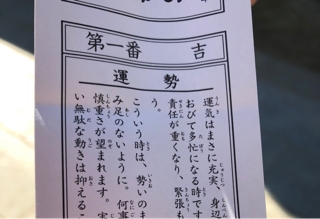 第一番 吉
運勢
運気はまさに充実、身辺
おびて多忙になる時です
責任が重くなり、緊張も
う。
こういう時は、勢いのま
み足のないように。何事
慎重さが望まれます。実
い無駄な動きは抑えるこ